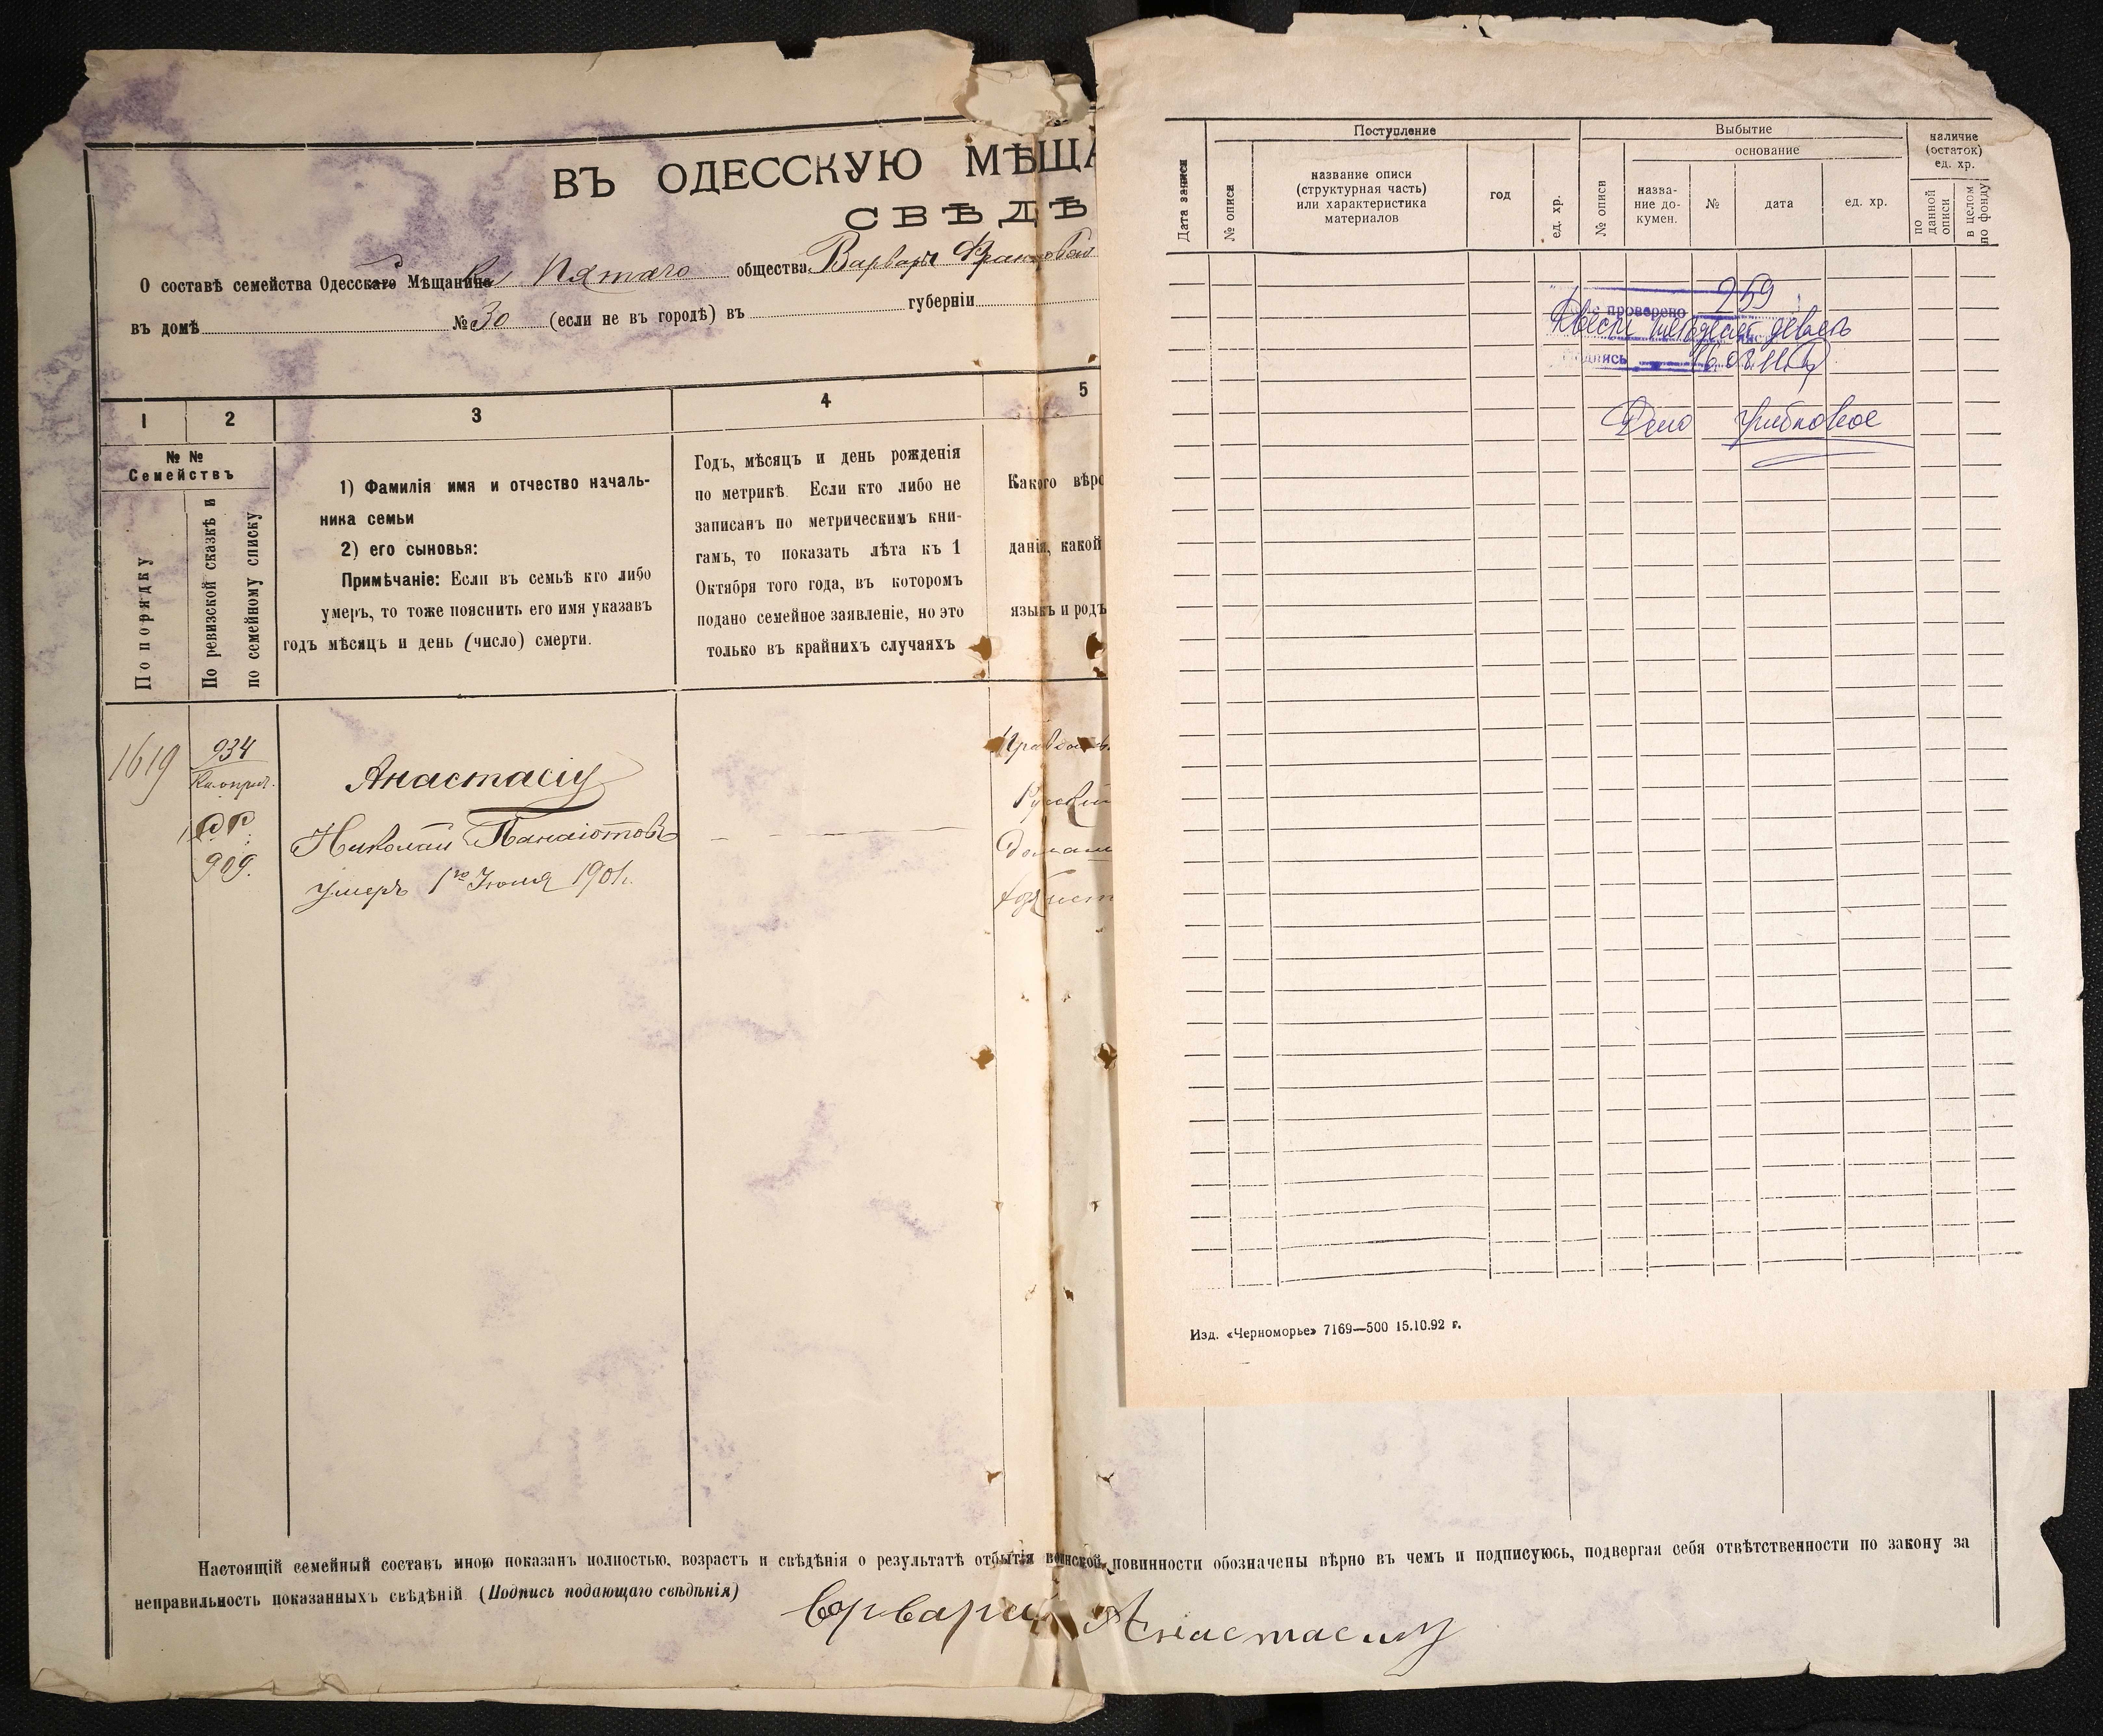 ВЪ ОДЕССКУЮ МѢЩА
СВѢДѢ
О составѣ семейства Одесскаго Мѣщанина Пятаго общества Варвары
въ домѣ № 30 (если не въ городѣ) въ губерніи
1 2 3 4 5
№ №
Семействъ
По порядку
По ревизской сказкѣ и
по семейному списку
1) Фамилія имя и отчество началь-
ника семьи
2) его сыновья:
Примѣчаніе: Если въ семьѣ кто либо
умеръ, то тоже пояснить его имя указавъ
годъ мѣсяцъ и день (число) смерти.
Годъ, мѣсяцъ и день рожденія
по метрикѣ. Если кто либо не
записанъ по метрическимъ кни-
гамъ, то показать лѣта къ 1
Октября того года, въ которомъ
подано семейное заявленіе, но это
только въ крайнихъ случаяхъ
Какого вѣро
данія, какой
языкъ и родъ
1619
934
909.
Анастасіу
Николай Панаіотовъ
умеръ 1го Іюля 1901г.
Правосл
Русскій
Настоящій семейный составъ мною показанъ полностью, возрастъ и свѣдѣнія о результатѣ отбытія воинской повинности обозначены вѣрно въ чемъ и подписуюсь, подвергая себя отвѣтственности по закону за
неправильность показанныхъ свѣдѣній. (Подпись подающаго свѣдѣнія)
Варвара Анастасиу
Дата записи
Поступление
№ описи
название описи
(структурная часть)
или характеристика
материалов
год
ед. хр.
Выбытие
№ описи
основание
назва-
ние до-
кумен.
№
дата
ед. хр.
наличие
(остаток)
ед. хр.
по
данной
описи
в целом
по фонду
259
проверено
Двести пятьдесят девять
подпись
Дело грибковое
Изд. «Черноморье» 7169—500 15.10.92 г.